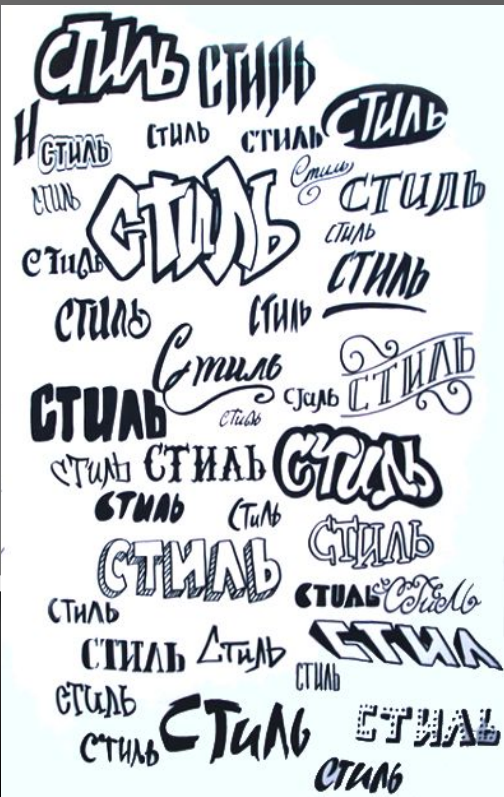 СТИЛЬ СТИЛЬ
СТИЛЬ
Н СТИЛЬ СТИЛЬ СТИЛЬ
СТИЛЬ СТИЛЬ Стиль СТИЛЬ
СТИЛЬ
СТИЛЬ СТИЛЬ
СТИЛЬ СТИЛЬ
Стиль СТИЛЬ
СТИЛЬ Стиль стиль
СТИЛЬ СТИЛЬ СТИЛЬ
СТИЛЬ СТИЛЬ
СТИЛЬ СТИЛЬ
СТИЛЬ СТИЛЬ
СТИЛЬ
СТИЛЬ СТИЛЬ СТИЛ
СТИЛЬ
СТИЛЬ СТИЛЬ СТИЛЬ
СТИЛЬ
СТИЛЬ